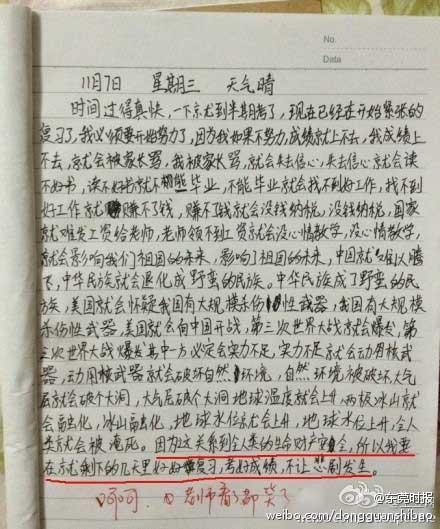 No.
Data
11月7日 星期三 天气晴
时间过得真快,一下就到半期考了,现在已经在开始紧张的
复习了,我必须要开始努力了,因为我如果不努力,成绩就上不去,我成绩上
不去,就会被家长骂,我被家长骂,就会失去信心,失去信心就会读
不好书,读不好书就不能毕业,不能毕业就会找不到好工作,找不到
好工作就赚不了钱,赚不了钱就会没钱纳税,没钱纳税,国家
就难发工资给老师,老师领不到工资就会没心情教学,没心情教学,
就会影响我们祖国的未来,影响了祖国的未来,中国就难以腾
飞,中华民族就会退化成野蛮的民族。中华民族成了野蛮的民
族,美国就会怀疑我国有大规模杀伤性武器,我国有大规
模杀伤性武器,美国就会向中国开战,第三次世界大战就会爆发,第
三次世界大战爆发其中一方必定会实力不足,实力不足就会动用核武
器,动用核武器就会破坏自然环境,自然环境被破坏,大气
层就会破个大洞,大气层破个大洞地球温度就会上升,两极冰山就
会融化,冰山融化,地球水位就会上升,地球水位上升,全人
类就会被淹死。因为这关系到全人类的生命财产安全,所以我要
在就剩下的几天里好好复习,考好成绩,不让悲剧发生。
呵呵 老师看了都笑了
@东莞时报
weibo.com/dongguanshibao